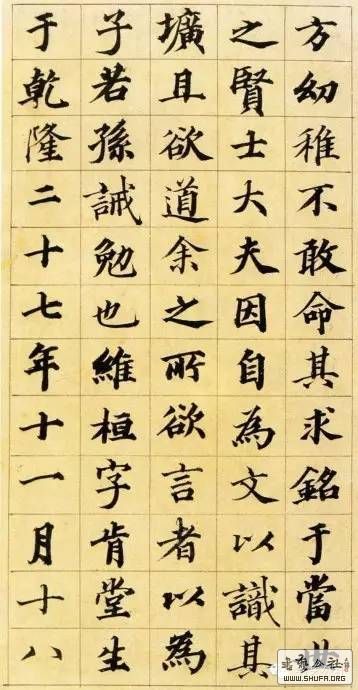 方幼稚不敢命其求銘于當
之賢士大夫因自為文以識其
壙且欲道余之所欲言者以為
子若孫誡勉也維桓字肯堂生
于乾隆二十七年十一月十八
公社
WWW.SHUFA.ORG